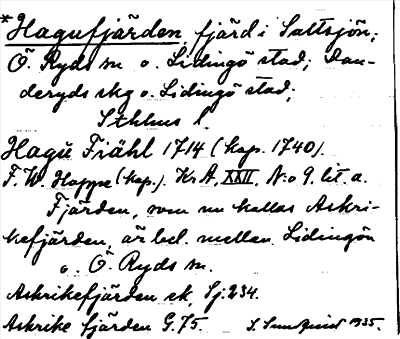 *Hagufjärden, fjärd i Saltsjön;
Ö. Ryds sn o. Lidingö stad; Dan-
deryds skg o. Lidingö stad;
Sthlms l.
Hagu Fiähl 1714 (kop. 1740).
F. W. Hoppe (kop.). Kr A, XXII, N:o 9. lit. a.
Fjärden, som nu kallas Askri-
kefjärden, är bel. mellan Lidingön
o. Ö. Ryds sn.
Askrikefjärden ek, Sj: 234.
Askrike fjärden G. 75. S. Sundquist 1935.